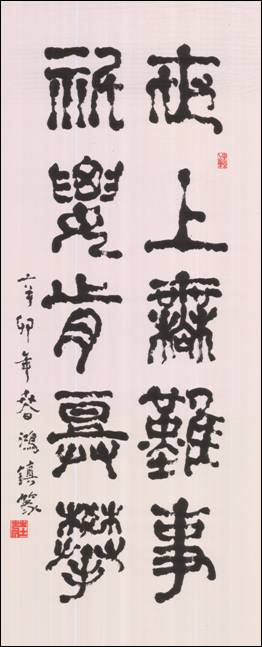 世上無難事
祇要肯登攀
辛卯年春鴻鎮篆